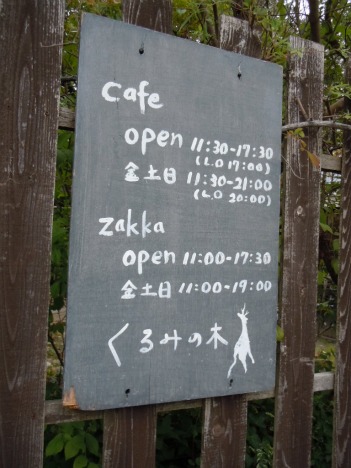 Cafe
open 11:30-17:30
(L.O 17:00)
金土日 11:30-21:00
(L.O 20:00)
zakka
open 11:00-17:30
金土日 11:00-19:00
くるみの木